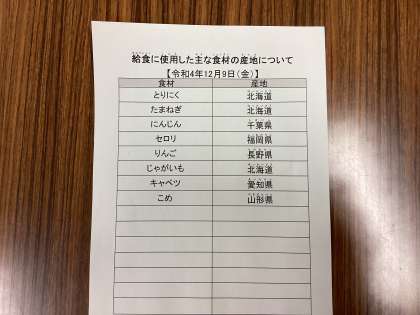 給食に使用した主な食材の産地について
【令和4年12月9日(金)】
食材 産地
とりにく 北海道
たまねぎ 北海道
にんじん 千葉県
セロリ 福岡県
りんご 長野県
じゃがいも 北海道
キャベツ 愛知県
こめ 山形県